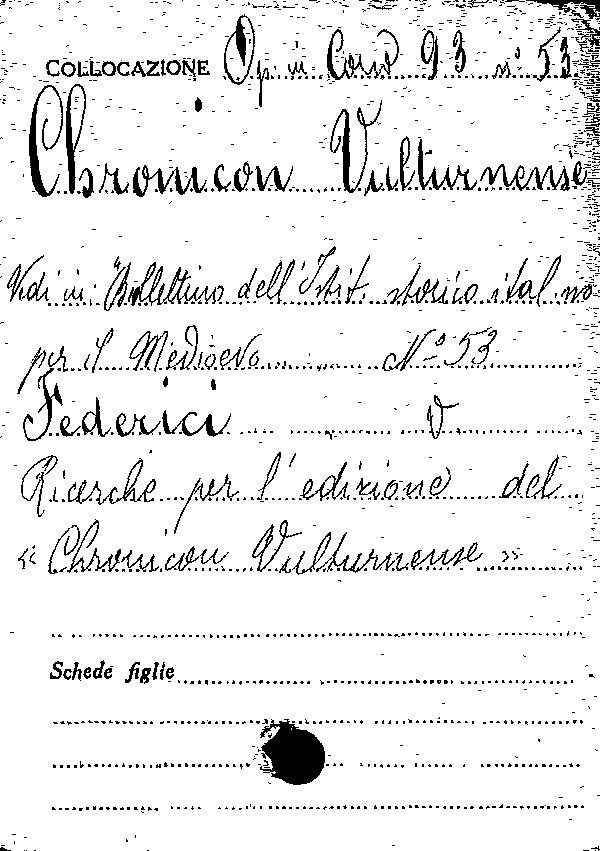 COLLOCAZIONE Op. in Cons 93 n° 53
Chronicon Vulturnense
Vedi in: Bollettino dell'Istit. storico ital.no
per il Medioevo N° 53
Federici V
Ricerche per l'edizione del
« Chronicon Vulturnense »
Schede figlie